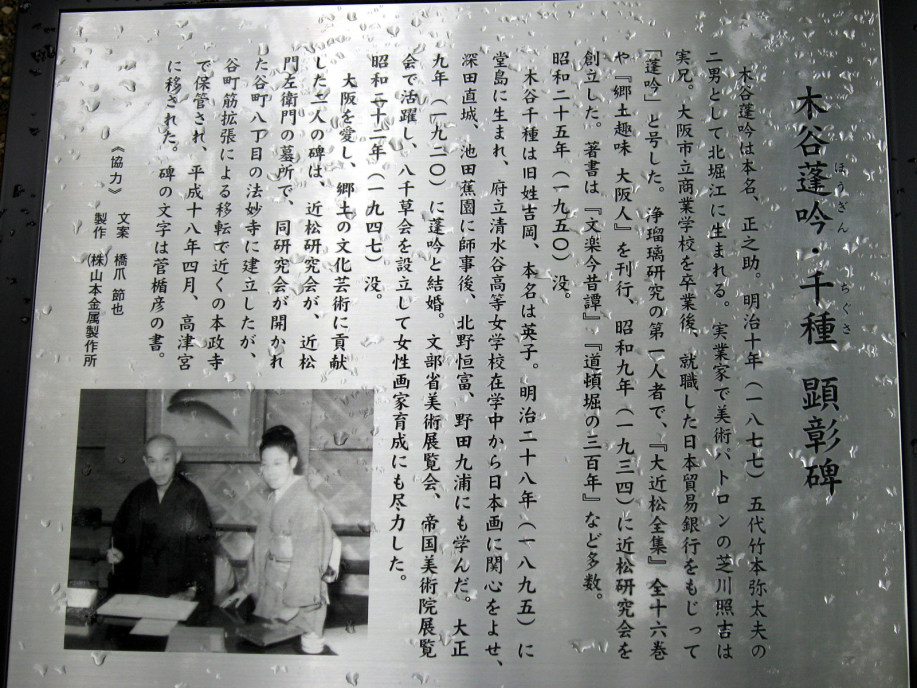 木谷蓬吟・千種 顕彰碑
ほうぎん ちぐさ
木谷蓬吟は本名、正之助。明治十年（一八七七）五代竹本弥太夫の
二男として北堀江に生まれる。実業家で美術パトロンの芝川照吉は
実兄。大阪市立商業学校を卒業後、就職した日本貿易銀行をもじって
「蓬吟」と号した。浄瑠璃研究の第一人者で、『大近松全集』全十六巻
や『郷土趣味 大阪人』を刊行、昭和九年（一九三四）に近松研究会を
創立した。著書は『文楽今昔譚』『道頓堀の三百年』など多数。
昭和二十五年（一九五〇）没。
木谷千種は旧姓吉岡、本名は英子。明治二十八年（一八九五）に
堂島に生まれ、府立清水谷高等女学校在学中から日本画に関心をよせ、
深田直城、池田蕉園に師事後、北野恒富、野田九浦にも学んだ。大正
九年（一九二〇）に蓬吟と結婚。文部省美術展覧会、帝国美術院展覧
会で活躍し、八千草会を設立して女性画家育成にも尽力した。
昭和二十二年（一九四七）没。
大阪を愛し、郷土の文化芸術に貢献
した二人の碑は、近松研究会が、近松
門左衛門の墓所で、同研究会が開かれ
た谷町八丁目の法妙寺に建立したが、
谷町筋拡張による移転で近くの本政寺
で保管され、平成十八年四月、高津宮
に移された。碑の文字は菅楯彦の書。
《協力》 文案 橋爪 節也
製作 （株）山本金属製作所